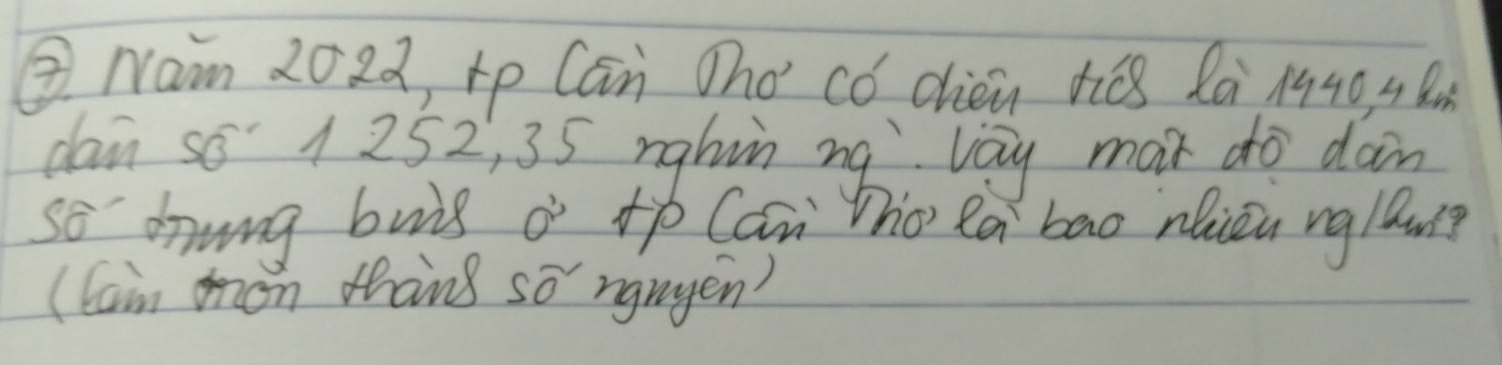 ⑦. Năm 2022, tp Cần Thơ có diện tích là 1440,4 km²
dân số 1 252,35 nghìn ng`. Vậy mật độ dân
số trung bình ở tp Cần Thơ là bao nhiêu ng/km²?
(Làm tròn thành số nguyên)